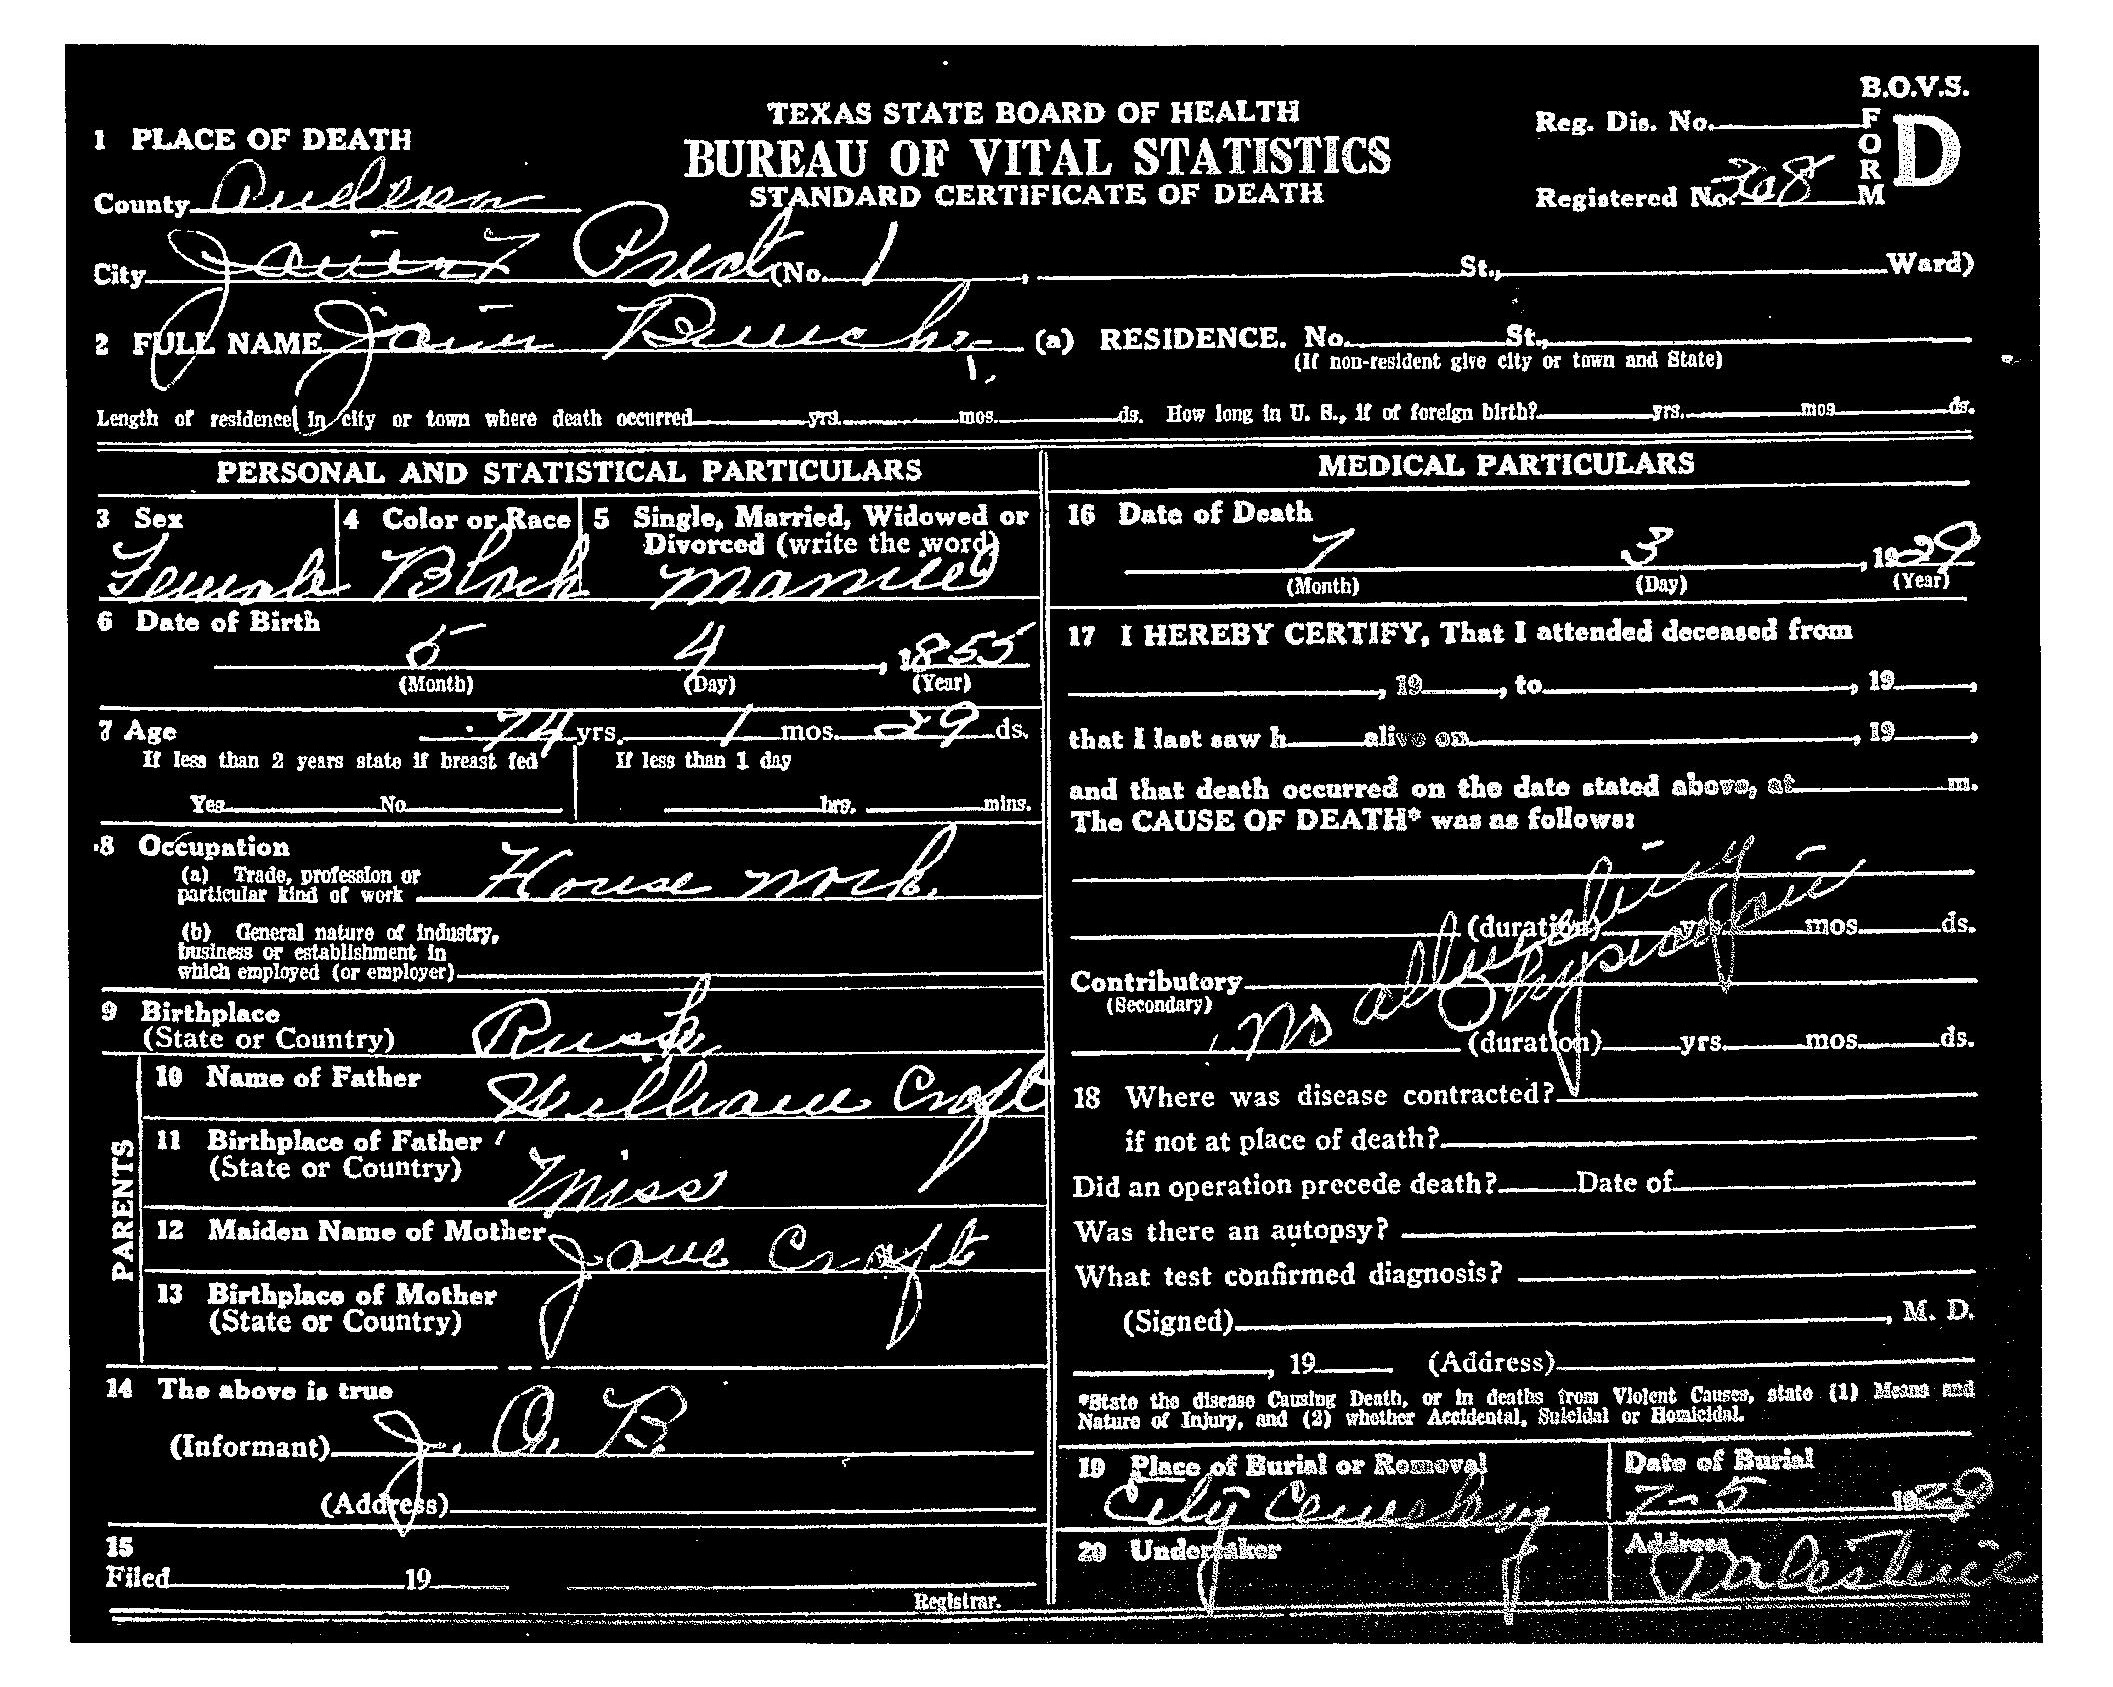 B.O.V.S.
FORM D
TEXAS STATE BOARD OF HEALTH
BUREAU OF VITAL STATISTICS
STANDARD CERTIFICATE OF DEATH
Reg. Dis. No.
Registered No. 368
1 PLACE OF DEATH
County Anderson
City Prect (No. 1, St., Ward)
2 FULL NAME (a) RESIDENCE. No. St.,
(If non-resident give city or town and State)
Length of residence in city or town where death occurred yrs. mos. ds. How long in U. S., if of foreign birth? yrs. mos ds.
PERSONAL AND STATISTICAL PARTICULARS
3 Sex
Female
4 Color or Race
Black
5 Single, Married, Widowed or
Divorced (write the word)
Married
6 Date of Birth
5 4, 1855
(Month) (Day) (Year)
7 Age 74 yrs. 1 mos. 29 ds.
If less than 2 years state if breast fed
Yes No
If less than 1 day
hrs. mins.
8 Occupation
(a) Trade, profession or
particular kind of work House work
(b) General nature of industry,
business or establishment in
which employed (or employer)
9 Birthplace
(State or Country) Rusk
PARENTS
10 Name of Father William Croft
11 Birthplace of Father
(State or Country) Miss
12 Maiden Name of Mother Jane Croft
13 Birthplace of Mother
(State or Country)
14 The above is true
(Informant) J. O. B.
(Address)
15
Filed 19
Registrar.
MEDICAL PARTICULARS
16 Date of Death
7 3, 1929
(Month) (Day) (Year)
17 I HEREBY CERTIFY, That I attended deceased from
, 19 , to , 19 ,
that I last saw h alive on , 19 ,
and that death occurred on the date stated above, at m.
The CAUSE OF DEATH* was as follows:
(duration) yrs. mos. ds.
Contributory
(Secondary)
(duration) yrs. mos. ds.
18 Where was disease contracted?
if not at place of death?
Did an operation precede death? Date of
Was there an autopsy?
What test confirmed diagnosis?
(Signed) , M. D.
, 19 (Address)
*State the disease Causing Death, or in deaths from Violent Causes, state (1) Means and
Nature of Injury, and (2) whether Accidental, Suicidal or Homicidal.
19 Place of Burial or Removal
City Cemetery
Date of Burial
7-5 1929
20 Undertaker
Address
Palestine